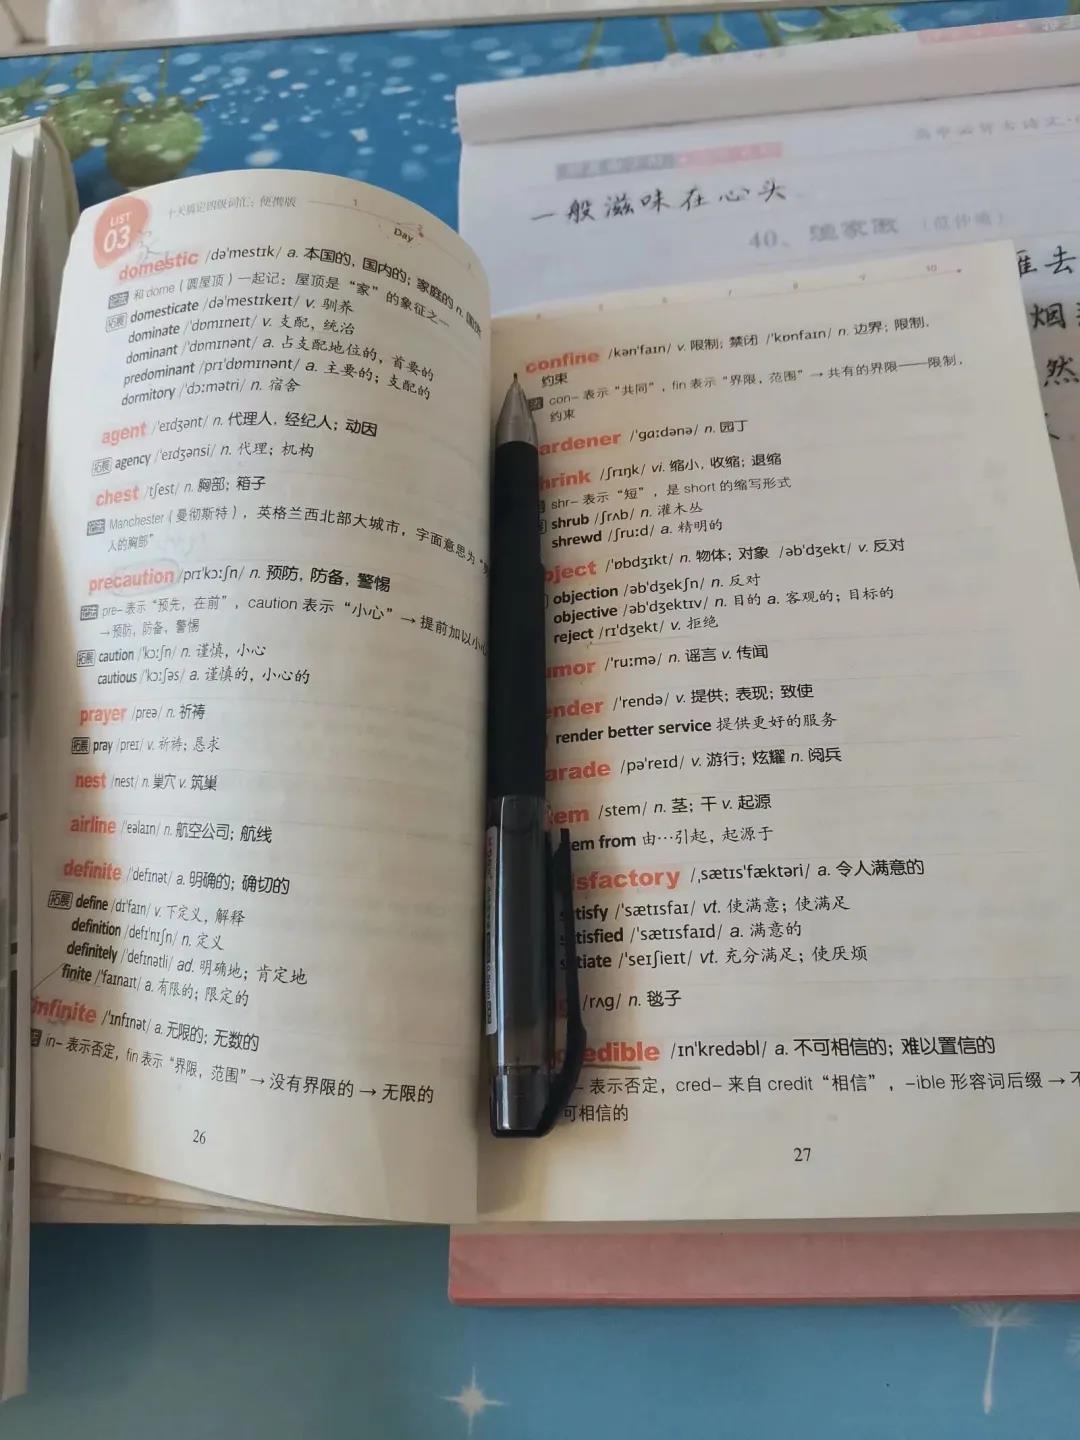 LIST
03
十天搞定四级词汇：便携版
1
2
Day
domestic /də'mestɪk/ a. 本国的, 国内的; 家庭的 n.
记法 和 dome（圆屋顶）一起记：屋顶是“家”的象征之一
拓展 domesticate /də'mestɪkeɪt/ v. 驯养
dominate /'dɒmɪneɪt/ v. 支配，统治
dominant /'dɒmɪnənt/ a. 占支配地位的，首要的
predominant /prɪ'dɒmɪnənt/ a. 主要的；支配的
dormitory /'dɔːmətri/ n. 宿舍
agent /'eɪdʒənt/ n. 代理人, 经纪人; 动因
拓展 agency /'eɪdʒənsi/ n. 代理；机构
chest /tʃest/ n. 胸部; 箱子
记法 Manchester（曼彻斯特），英格兰西北部大城市，字面意思为“
人的胸部”
precaution /prɪ'kɔːʃn/ n. 预防, 防备, 警惕
记法 pre- 表示“预先，在前”，caution 表示“小心” → 提前加以小心
→ 预防，防备，警惕
拓展 caution /'kɔːʃn/ n. 谨慎，小心
cautious /'kɔːʃəs/ a. 谨慎的，小心的
prayer /preə/ n. 祈祷
拓展 pray /preɪ/ v. 祈祷；恳求
nest /nest/ n. 巢穴 v. 筑巢
airline /'eəlaɪn/ n. 航空公司; 航线
definite /'defɪnət/ a. 明确的; 确切的
拓展 define /dɪ'faɪn/ v. 下定义，解释
definition /defɪ'nɪʃn/ n. 定义
definitely /'defɪnətli/ ad. 明确地；肯定地
finite /'faɪnaɪt/ a. 有限的；限定的
infinite /'ɪnfɪnət/ a. 无限的; 无数的
in- 表示否定，fin 表示“界限，范围” → 没有界限的 → 无限的
26
一般滋味在心头
40、渔家傲
谁去
烟
然
10
confine /kən'faɪn/ v. 限制; 禁闭 /'kɒnfaɪn/ n. 边界; 限制,
约束
con- 表示“共同”，fin 表示“界限，范围” → 共有的界限——限制，
约束
ardener /'ɡɑːdənə/ n. 园丁
hrink /ʃrɪŋk/ vi. 缩小, 收缩; 退缩
shr- 表示“短”，是 short 的缩写形式
shrub /ʃrʌb/ n. 灌木丛
shrewd /ʃruːd/ a. 精明的
bject /'ɒbdʒɪkt/ n. 物体; 对象 /əb'dʒekt/ v. 反对
objection /əb'dʒekʃn/ n. 反对
objective /əb'dʒektɪv/ n. 目的 a. 客观的；目标的
reject /rɪ'dʒekt/ v. 拒绝
umor /'ruːmə/ n. 谣言 v. 传闻
ender /'rendə/ v. 提供; 表现; 致使
render better service 提供更好的服务
arade /pə'reɪd/ v. 游行; 炫耀 n. 阅兵
tem /stem/ n. 茎; 干 v. 起源
em from 由…引起，起源于
isfactory /ˌsætɪs'fæktəri/ a. 令人满意的
tisfy /'sætɪsfaɪ/ vt. 使满意；使满足
tisfied /'sætɪsfaɪd/ a. 满意的
tiate /'seɪʃieɪt/ vt. 充分满足；使厌烦
/rʌɡ/ n. 毯子
credible /ɪn'kredəbl/ a. 不可相信的; 难以置信的
- 表示否定，cred- 来自 credit“相信”，-ible 形容词后缀 → 不
可相信的
27